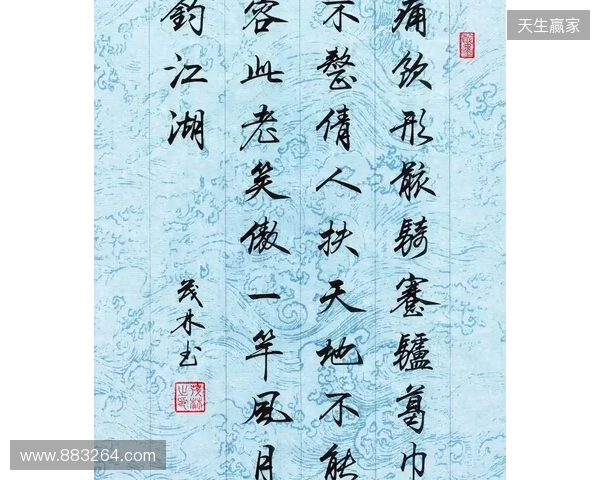 天生赢家
痛饮形骸騎蹇驢葛巾
不整倩人扶天地不能
容此老笑傲一竿風月
釣江湖
茂林书
www.883264.com